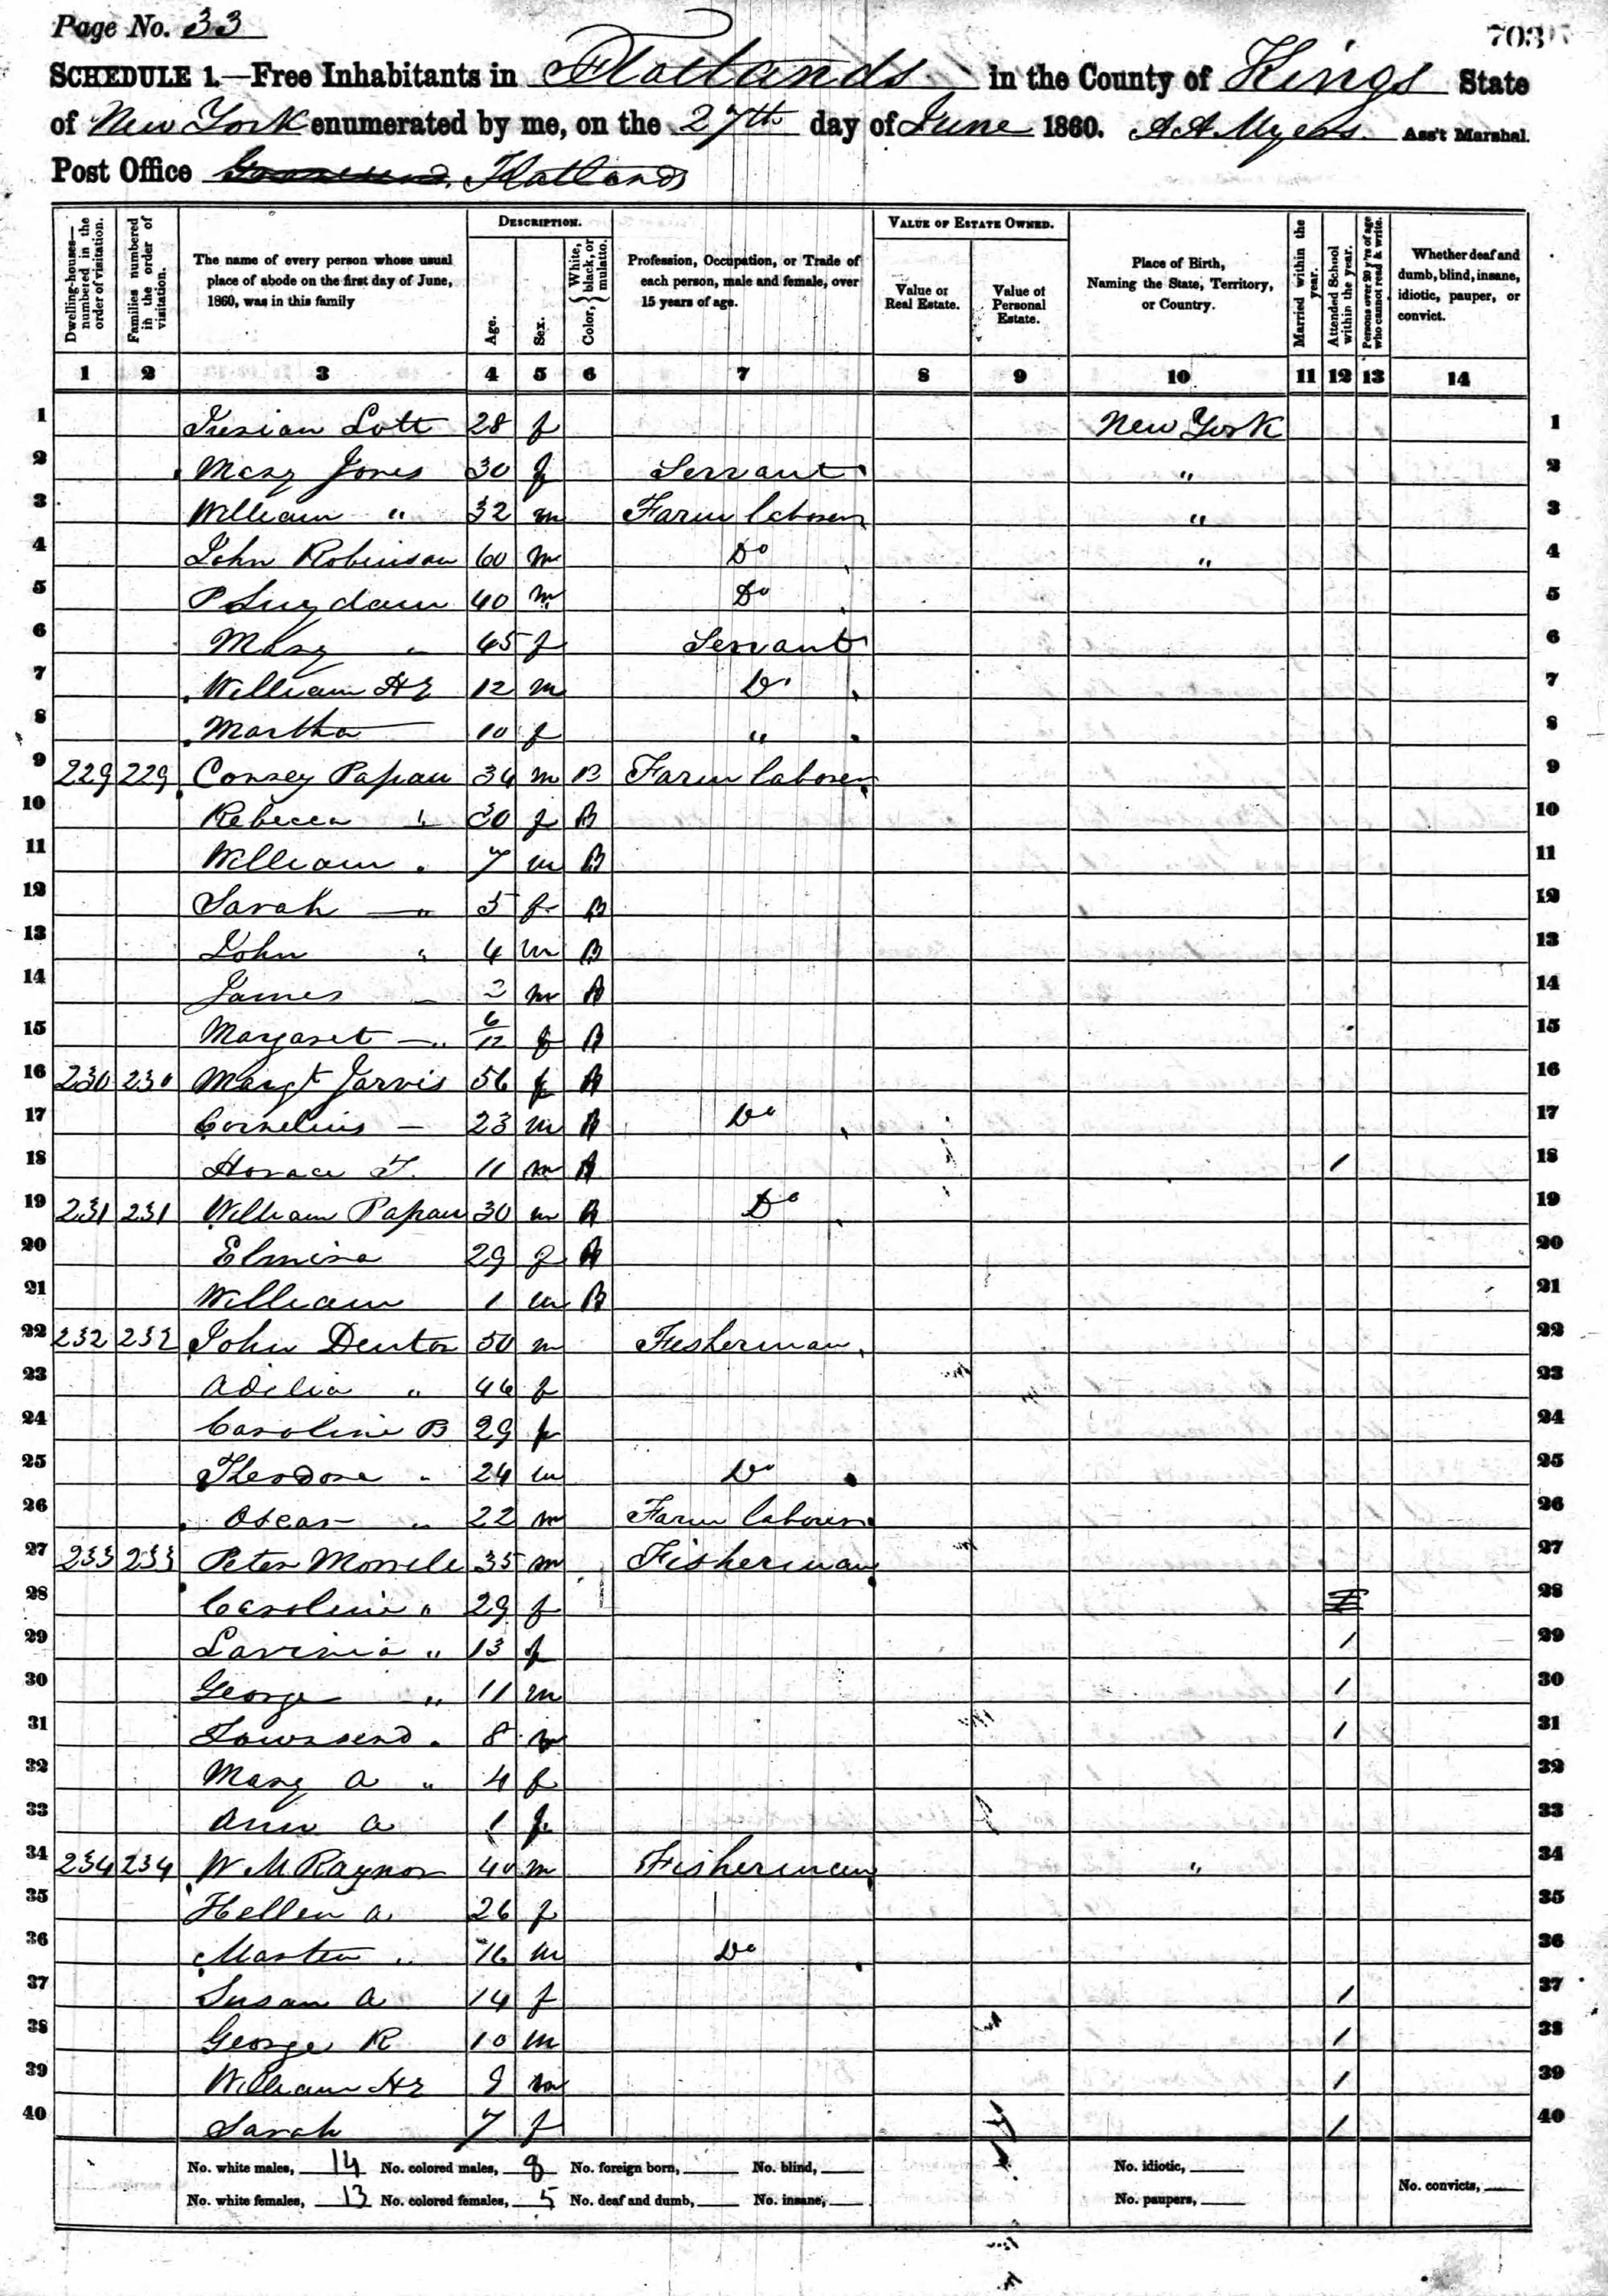 Page No. 33
703
SCHEDULE 1.—Free Inhabitants in Flatlands in the County of Kings State
of New York enumerated by me, on the 27th day of June 1860. A A Myers Ass't Marshal.
Post Office Flatlands
Dwelling-houses—numbered in the order of visitation.
Families numbered in the order of visitation.
The name of every person whose usual place of abode on the first day of June, 1860, was in this family
DESCRIPTION.
Age.
Sex.
Color, { White, black, or mulatto.
Profession, Occupation, or Trade of each person, male and female, over 15 years of age.
VALUE OF ESTATE OWNED.
Value of Real Estate.
Value of Personal Estate.
Place of Birth, Naming the State, Territory, or Country.
Married within the year.
Attended School within the year.
Persons over 20 y'rs of age who cannot read & write.
Whether deaf and dumb, blind, insane, idiotic, pauper, or convict.
1 2 3 4 5 6 7 8 9 10 11 12 13 14
1 Lott 28 f New York 1
2 Mary Jones 30 f Servant " 2
3 William " 32 m Farm laborer " 3
4 John Robinson 60 m Do " 4
5 P Suydam 40 m Do 5
6 Mary " 45 f Servant 6
7 William H 12 m Do 7
8 Martha 10 f " 8
9 229 229 Papau 34 m B Farm laborer 9
10 Rebecca " 30 f B 10
11 William " 7 m B 11
12 Sarah " 5 f B 12
13 John " 4 m B 13
14 James 2 m B 14
15 Margaret " 6/12 f B 15
16 230 230 Margt Jarvis 56 f B 16
17 Cornelius — 23 m B Do 17
18 Horace T. 11 m B / 18
19 231 231 William Papau 30 m B Do 19
20 Elmira 29 f B 20
21 William 1 m B 21
22 232 232 John Denton 50 m Fisherman 22
23 Adelia " 46 f 23
24 Caroline B 29 f 24
25 Theodore " 24 m Do 25
26 Oscar " 22 m Farm laborer 26
27 233 233 Peter Morrell 35 m Fisherman 27
28 Caroline " 29 f 28
29 Lavinia " 13 f / 29
30 George " 11 m / 30
31 Townsend " 8 m / 31
32 Mary A " 4 f 32
33 Ann A 1 f 33
34 234 234 W M Raynor 40 m Fisherman " 34
35 Hellen A 26 f 35
36 Martin " 16 m Do 36
37 Susan A 14 f / 37
38 George R 10 m / 38
39 William H m / 39
40 Sarah 7 f / 40
No. white males, 14 No. colored males, 8 No. foreign born, No. blind, No. idiotic,
No. white females, 13 No. colored females, 5 No. deaf and dumb, No. insane, No. paupers, No. convicts,